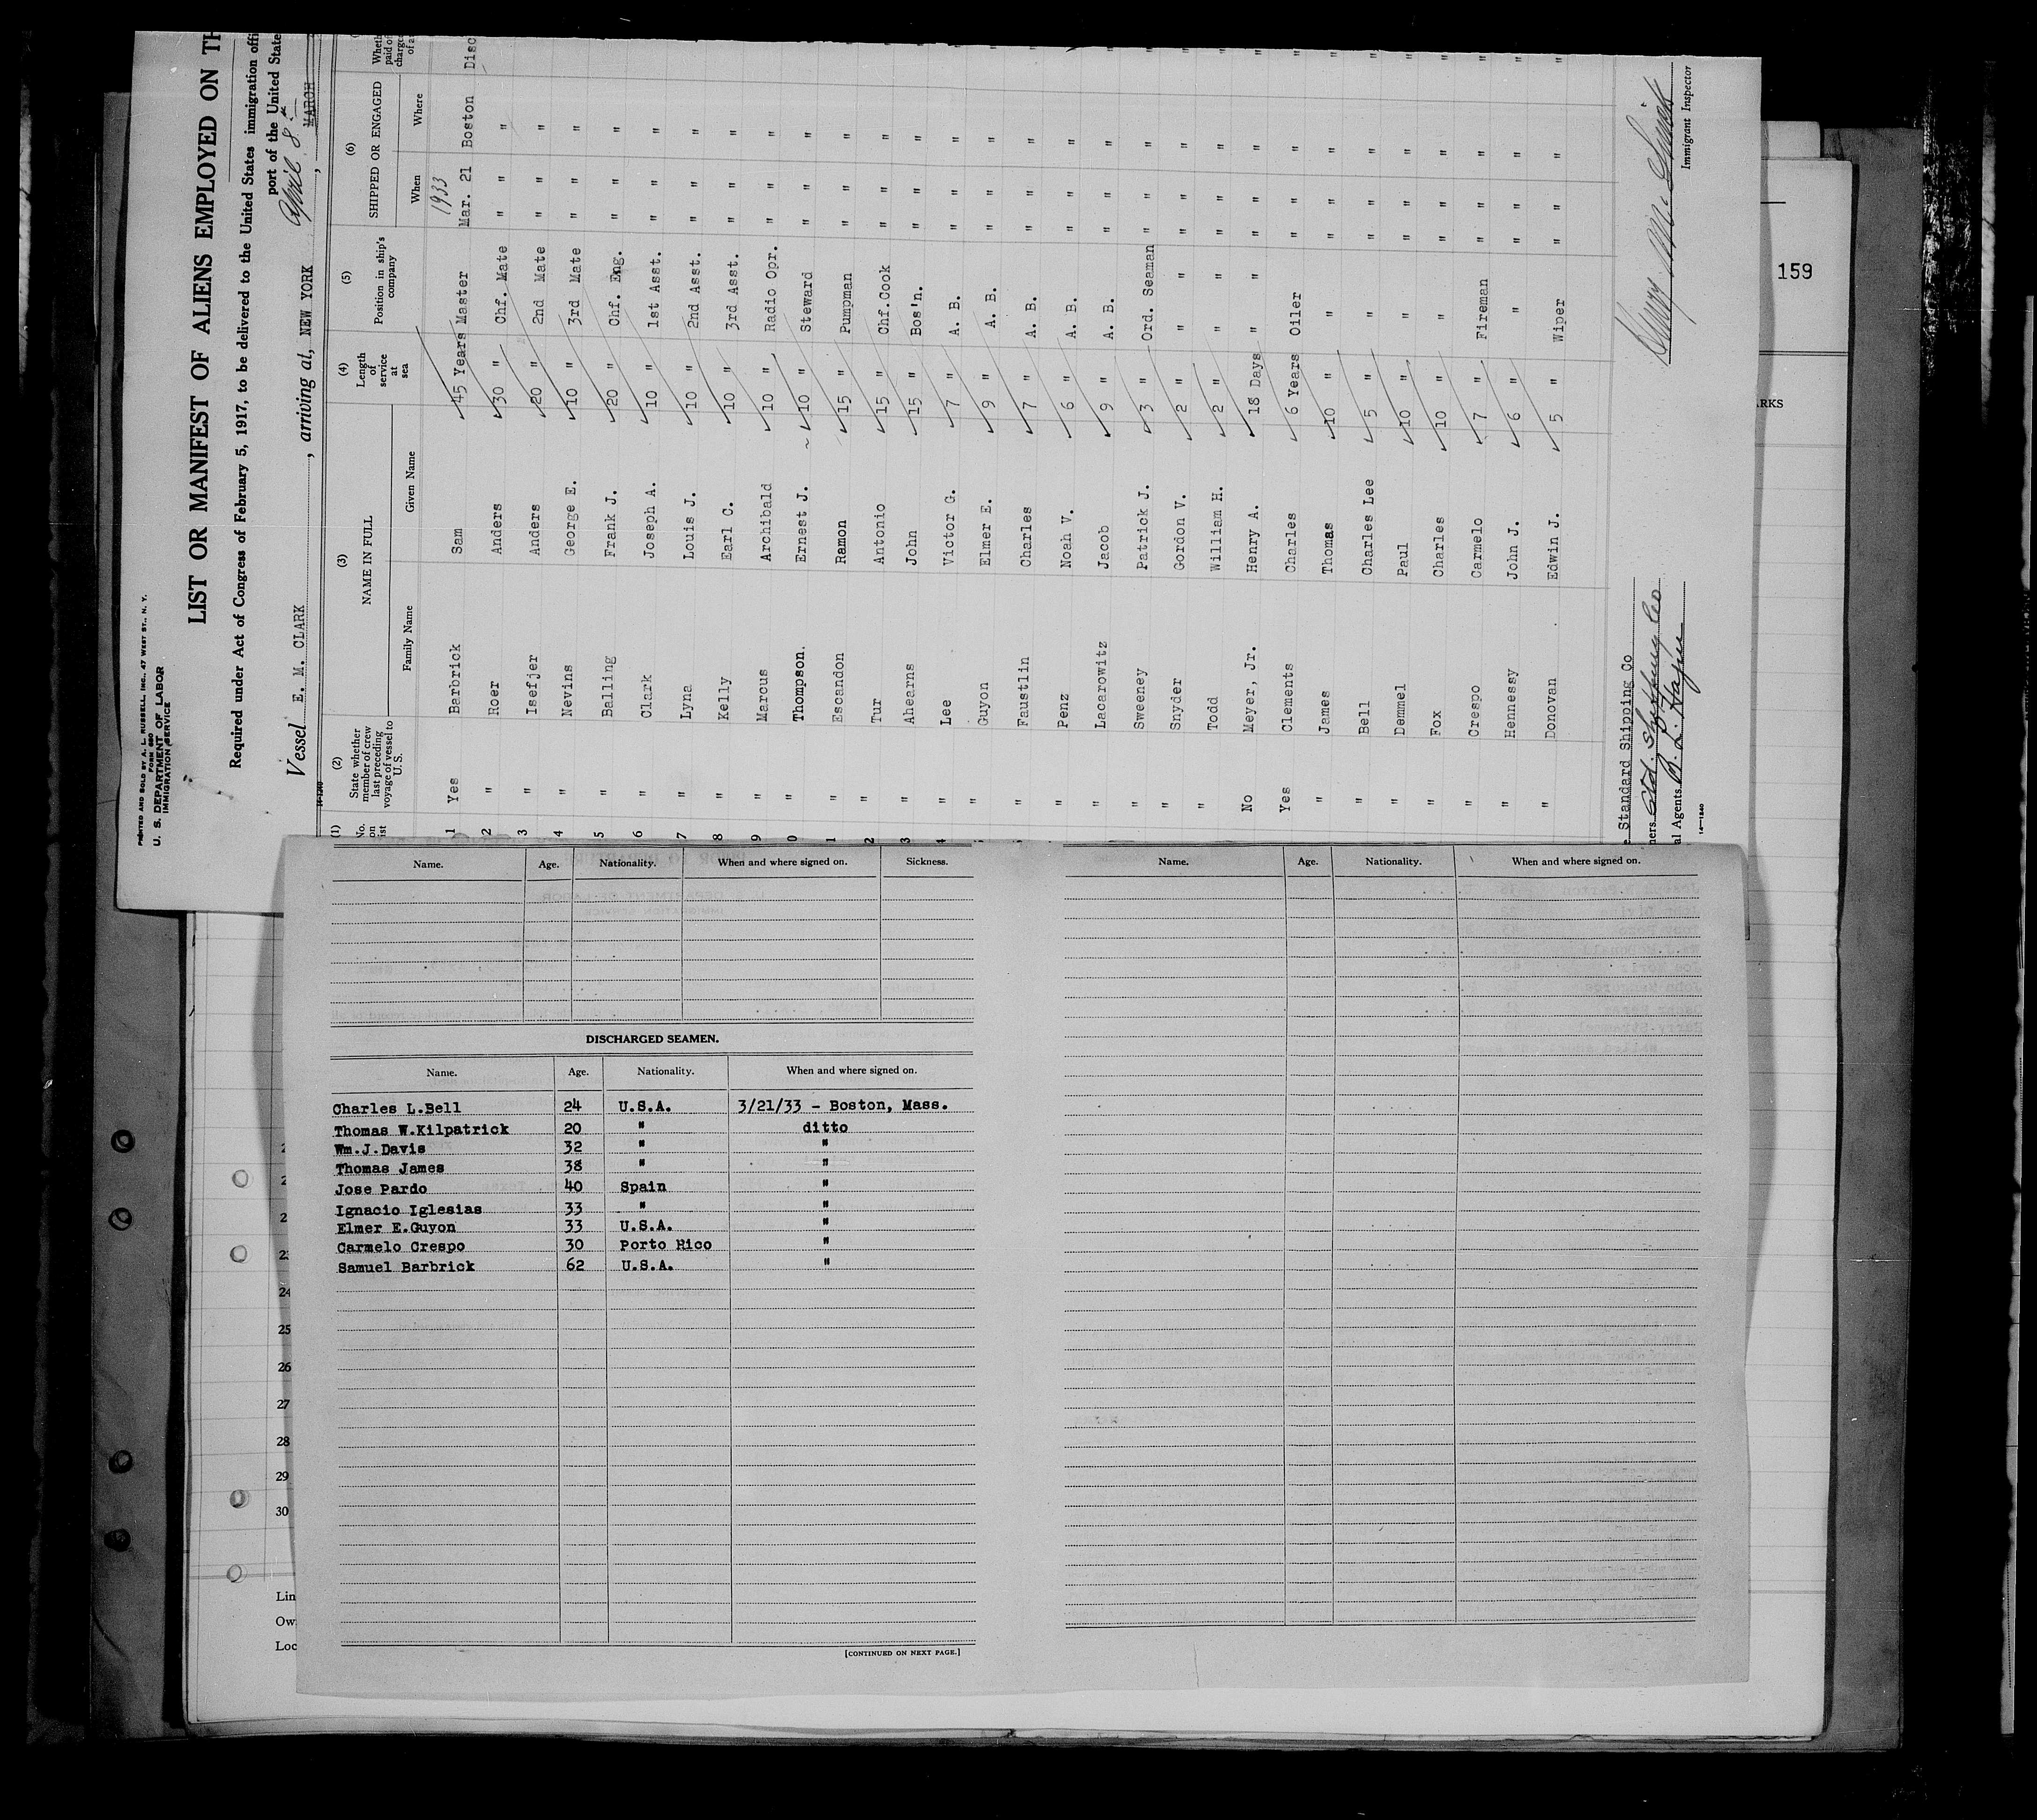 PRINTED AND SOLD BY A. L. RUSSELL, INC., 47 WEST ST., N. Y.
FORM 680
U. S. DEPARTMENT OF LABOR
IMMIGRATION SERVICE
LIST OR MANIFEST OF ALIENS EMPLOYED ON TH
Required under Act of Congress of February 5, 1917, to be delivered to the United States immigration offi
port of the United State
Vessel E. M. CLARK, arriving at, NEW YORK April 8 MARCH
(1) No. on ist (2) State whether member of crew last preceding voyage of vessel to U. S. (3) NAME IN FULL Family Name Given Name (4) Length of service at sea (5) Position in ship's company (6) SHIPPED OR ENGAGED When Where
1933
1 Yes Barbrick Sam 45 Years Master Mar. 21 Boston Disc
2 " Roer Anders 30 " Chf. Mate " " " "
3 " Isefjer Anders 20 " 2nd Mate " " " "
4 " Nevins George E. 10 " 3rd Mate " " " "
5 " Balling Frank J. 20 " Chf. Eng. " " " "
6 " Clark Joseph A. 10 " 1st Asst. " " " "
7 " Lyna Louis J. 10 " 2nd Asst. " " " "
8 " Kelly Earl C. 10 " 3rd Asst. " " " "
9 " Marcus Archibald 10 " Radio Opr. " " " "
0 " Thompson. Ernest J. 10 " Steward " " " "
1 " Escandon Ramon 15 " Pumpman " " " "
2 " Tur Antonio 15 " Chf.Cook " " " "
3 " Ahearns John 15 " Bos'n. " " " "
4 " Lee Victor G. 7 " A. B. " " " "
" Guyon Elmer E. 9 " A. B. " " " "
" Faustlin Charles 7 " A. B. " " " "
" Penz Noah V. 6 " A. B. " " " "
" Lacarowitz Jacob 9 " A. B. " " " "
" Sweeney Patrick J. 3 " Ord. Seaman " " " "
" Snyder Gordon V. 2 " " " " " "
" Todd William H. 2 " " " " " "
No Meyer, Jr. Henry A. 18 Days " " " " "
Yes Clements Charles 6 Years Oiler " " " "
" James Thomas 10 " " " " " "
" Bell Charles Lee 5 " " " " " "
" Demmel Paul 10 " " " " " "
" Fox Charles 10 " " " " " "
" Crespo Carmelo 7 " Fireman " " " "
" Hennessy John J. 6 " " " " " "
" Donovan Edwin J. 5 " Wiper " " " "
Standard Shipping Co
ners Std. Shipping Co
al Agents B. L.
14—1240
Henry M. Immigrant Inspector
159
RKS
Name. Age. Nationality. When and where signed on. Sickness.
DISCHARGED SEAMEN.
Name. Age. Nationality. When and where signed on.
Charles L.Bell 24 U.S.A. 3/21/33 - Boston, Mass.
Thomas W.Kilpatrick 20 " ditto
Wm.J.Davis 32 " "
Thomas James 38 " "
Jose Pardo 40 Spain "
Ignacio Iglesias 33 " "
Elmer E.Guyon 33 U.S.A. "
Carmelo Crespo 30 Porto Rico "
Samuel Barbrick 62 U.S.A. "
[CONTINUED ON NEXT PAGE.]
Name. Age. Nationality. When and where signed on.
24
25
26
27
28
29
30
Lin
Ow
Loc